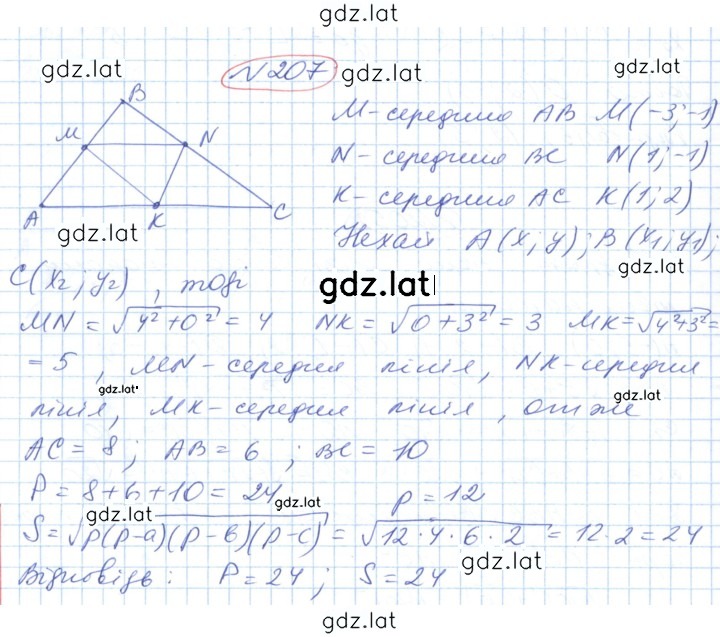 gdz.lat
N 207
gdz.lat
gdz.lat
gdz.lat
B
M
N
A
K
C
gdz.lat
M - середина AB M(-3; -1)
N - середина BC N(1; -1)
K - середина AC K(1; 2)
Нехай A(x; y); B(x₁; y₁);
gdz.lat
C(x₂; y₂), тоді
gdz.lat
MN = √(4² + 0²) = 4 NK = √(0 + 3²) = 3 MK = √(4² + 3²) =
= 5, MN - середня лінія, NK - середня
gdz.lat
gdz.lat
лінія, MK - середня лінія, отже
AC = 8; AB = 6; BC = 10
P = 8 + 6 + 10 = 24 p = 12
gdz.lat
gdz.lat
S = √(p(p-a)(p-b)(p-c)) = √(12·4·6·2) = 12·2 = 24
gdz.lat
Відповідь: P = 24; S = 24
gdz.lat